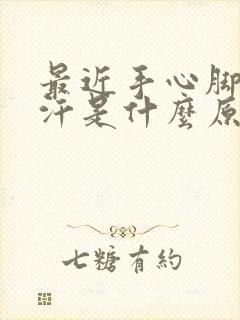 最近手心腳
汗是什麼原
七糖有約